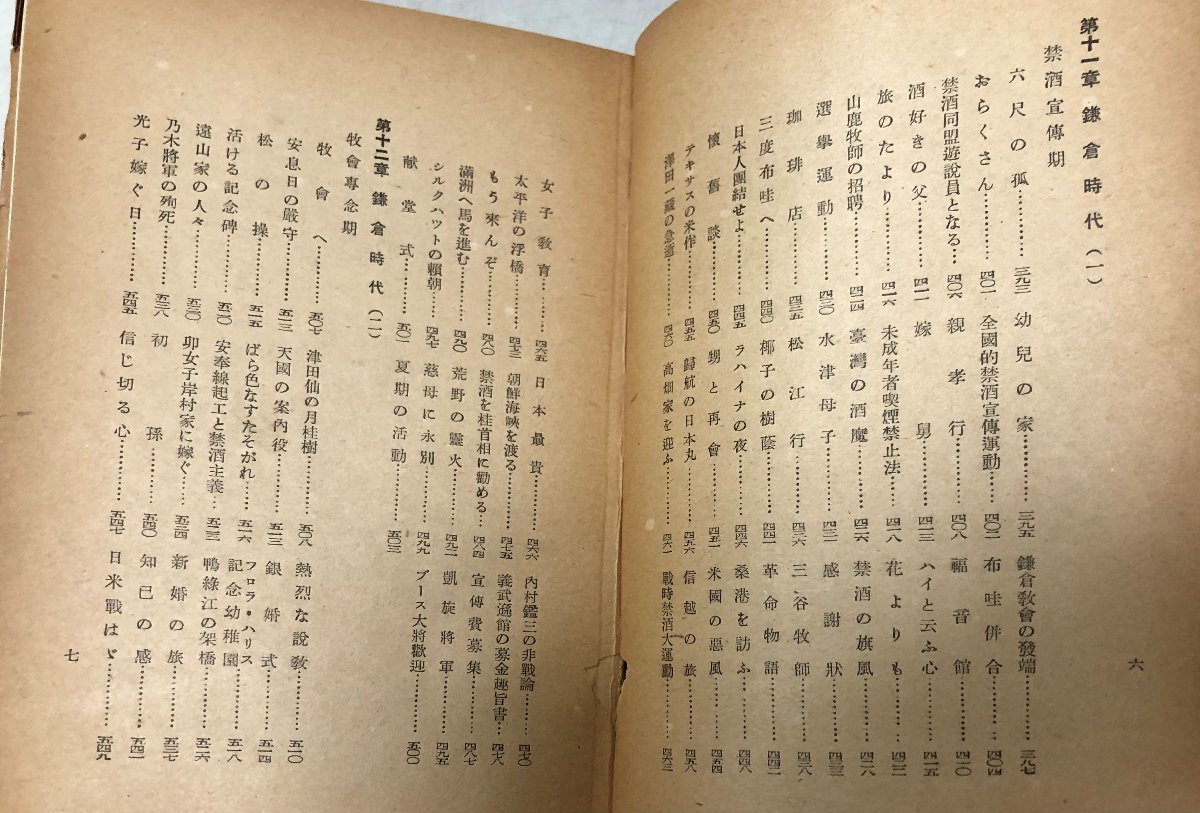 第十一章 鎌倉時代(一)
禁酒宣傳期
六尺の孤…………三九三 幼兒の家…………三九五 鎌倉教會の發端…………三九七
おらくさん…………四〇一 全國的禁酒宣傳運動…………四〇二 布哇併合…………四〇四
禁酒同盟遊說員となる…………四〇六 親孝行…………四〇八 福音館…………四一〇
酒好きの父…………四一一 嫁舅…………四一三 ハイと云ふ心…………四一五
旅のたより…………四一六 未成年者喫煙禁止法…………四一八 花よりも…………四二二
山鹿牧師の招聘…………四二四 臺灣の酒魔…………四二六 禁酒の旗風…………四二八
選擧運動…………四三〇 水津母子…………四三一 感謝狀…………四三三
珈琲店…………四三五 松江行…………四三六 三谷牧師…………四三八
三度布哇へ…………四四〇 椰子の樹蔭…………四四一 革命物語…………四四二
日本人團結せよ…………四四五 ラハイナの夜…………四四六 桑港を訪ふ…………四四八
懷舊談…………四五〇 甥と再會…………四五一 米國の惡風…………四五四
テキサスの米作…………四五五 歸航の日本丸…………四五六 信越の旅…………四五八
澤田一藏の急逝…………四六〇 高畑家を迎ふ…………四六一 戰時禁酒大運動…………四六三
六
女子教育…………四六五 日本最貴…………四六六 内村鑑三の非戰論…………四七〇
太平洋の浮橋…………四七三 朝鮮海峽を渡る…………四七五 義武遜館の募金趣旨書…………四七八
もう來んぞ…………四八〇 禁酒を桂首相に勸める…………四八四 宣傳費募集…………四八七
滿洲へ馬を進む…………四九〇 荒野の靈火…………四九二 凱旋將軍…………四九五
シルクハットの賴朝…………四九七 慈母に永別…………四九九 ブース大將歡迎…………五〇〇
献堂式…………五〇一 夏期の活動…………五〇三
第十二章 鎌倉時代(二)
牧會專念期
牧會へ…………五〇七 津田仙の月桂樹…………五〇八 熱烈な說教…………五一〇
安息日の嚴守…………五一三 天國の案内役…………五一三 銀婚式…………五一四
松の操…………五一五 ばら色なすたそがれ…………五一六 フロラ・ハリス記念幼稚園…………五一八
活ける記念碑…………五二〇 安奉線起工と禁酒主義…………五二三 鴨綠江の架橋…………五二六
遠山家の人々…………五三〇 卯女子岸村家に嫁ぐ…………五三四 新婚の旅…………五三七
乃木將軍の殉死…………五三八 初孫…………五四〇 知己の感…………五四一
光子嫁ぐ日…………五四五 信じ切る心…………五四七 日米戰はゞ…………五四九
七